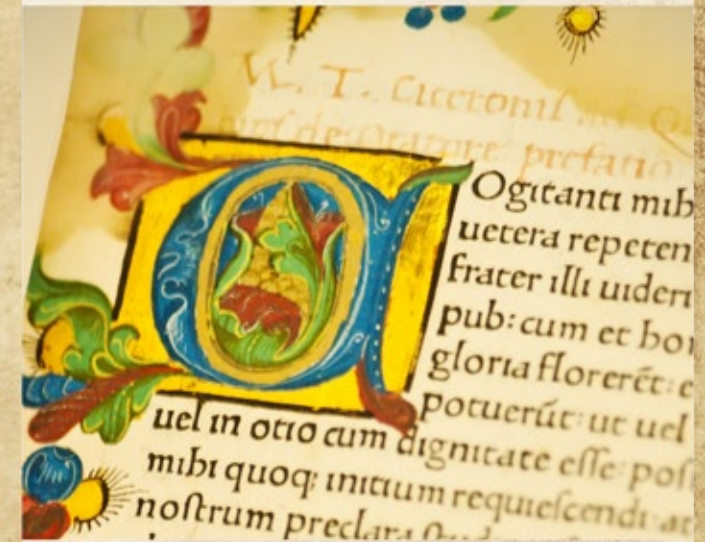 M. T. Ciceronis ad Q
de Oratore prefatio
COgitanti mih
uetera repeten
frater illi uideri
pub: cum et bo
gloria florerēt: e
potuerūt: ut uel
uel in otio cum dignitate eſſe poſ
mihi quoq; initium requieſcendi at
noſtrum preclara